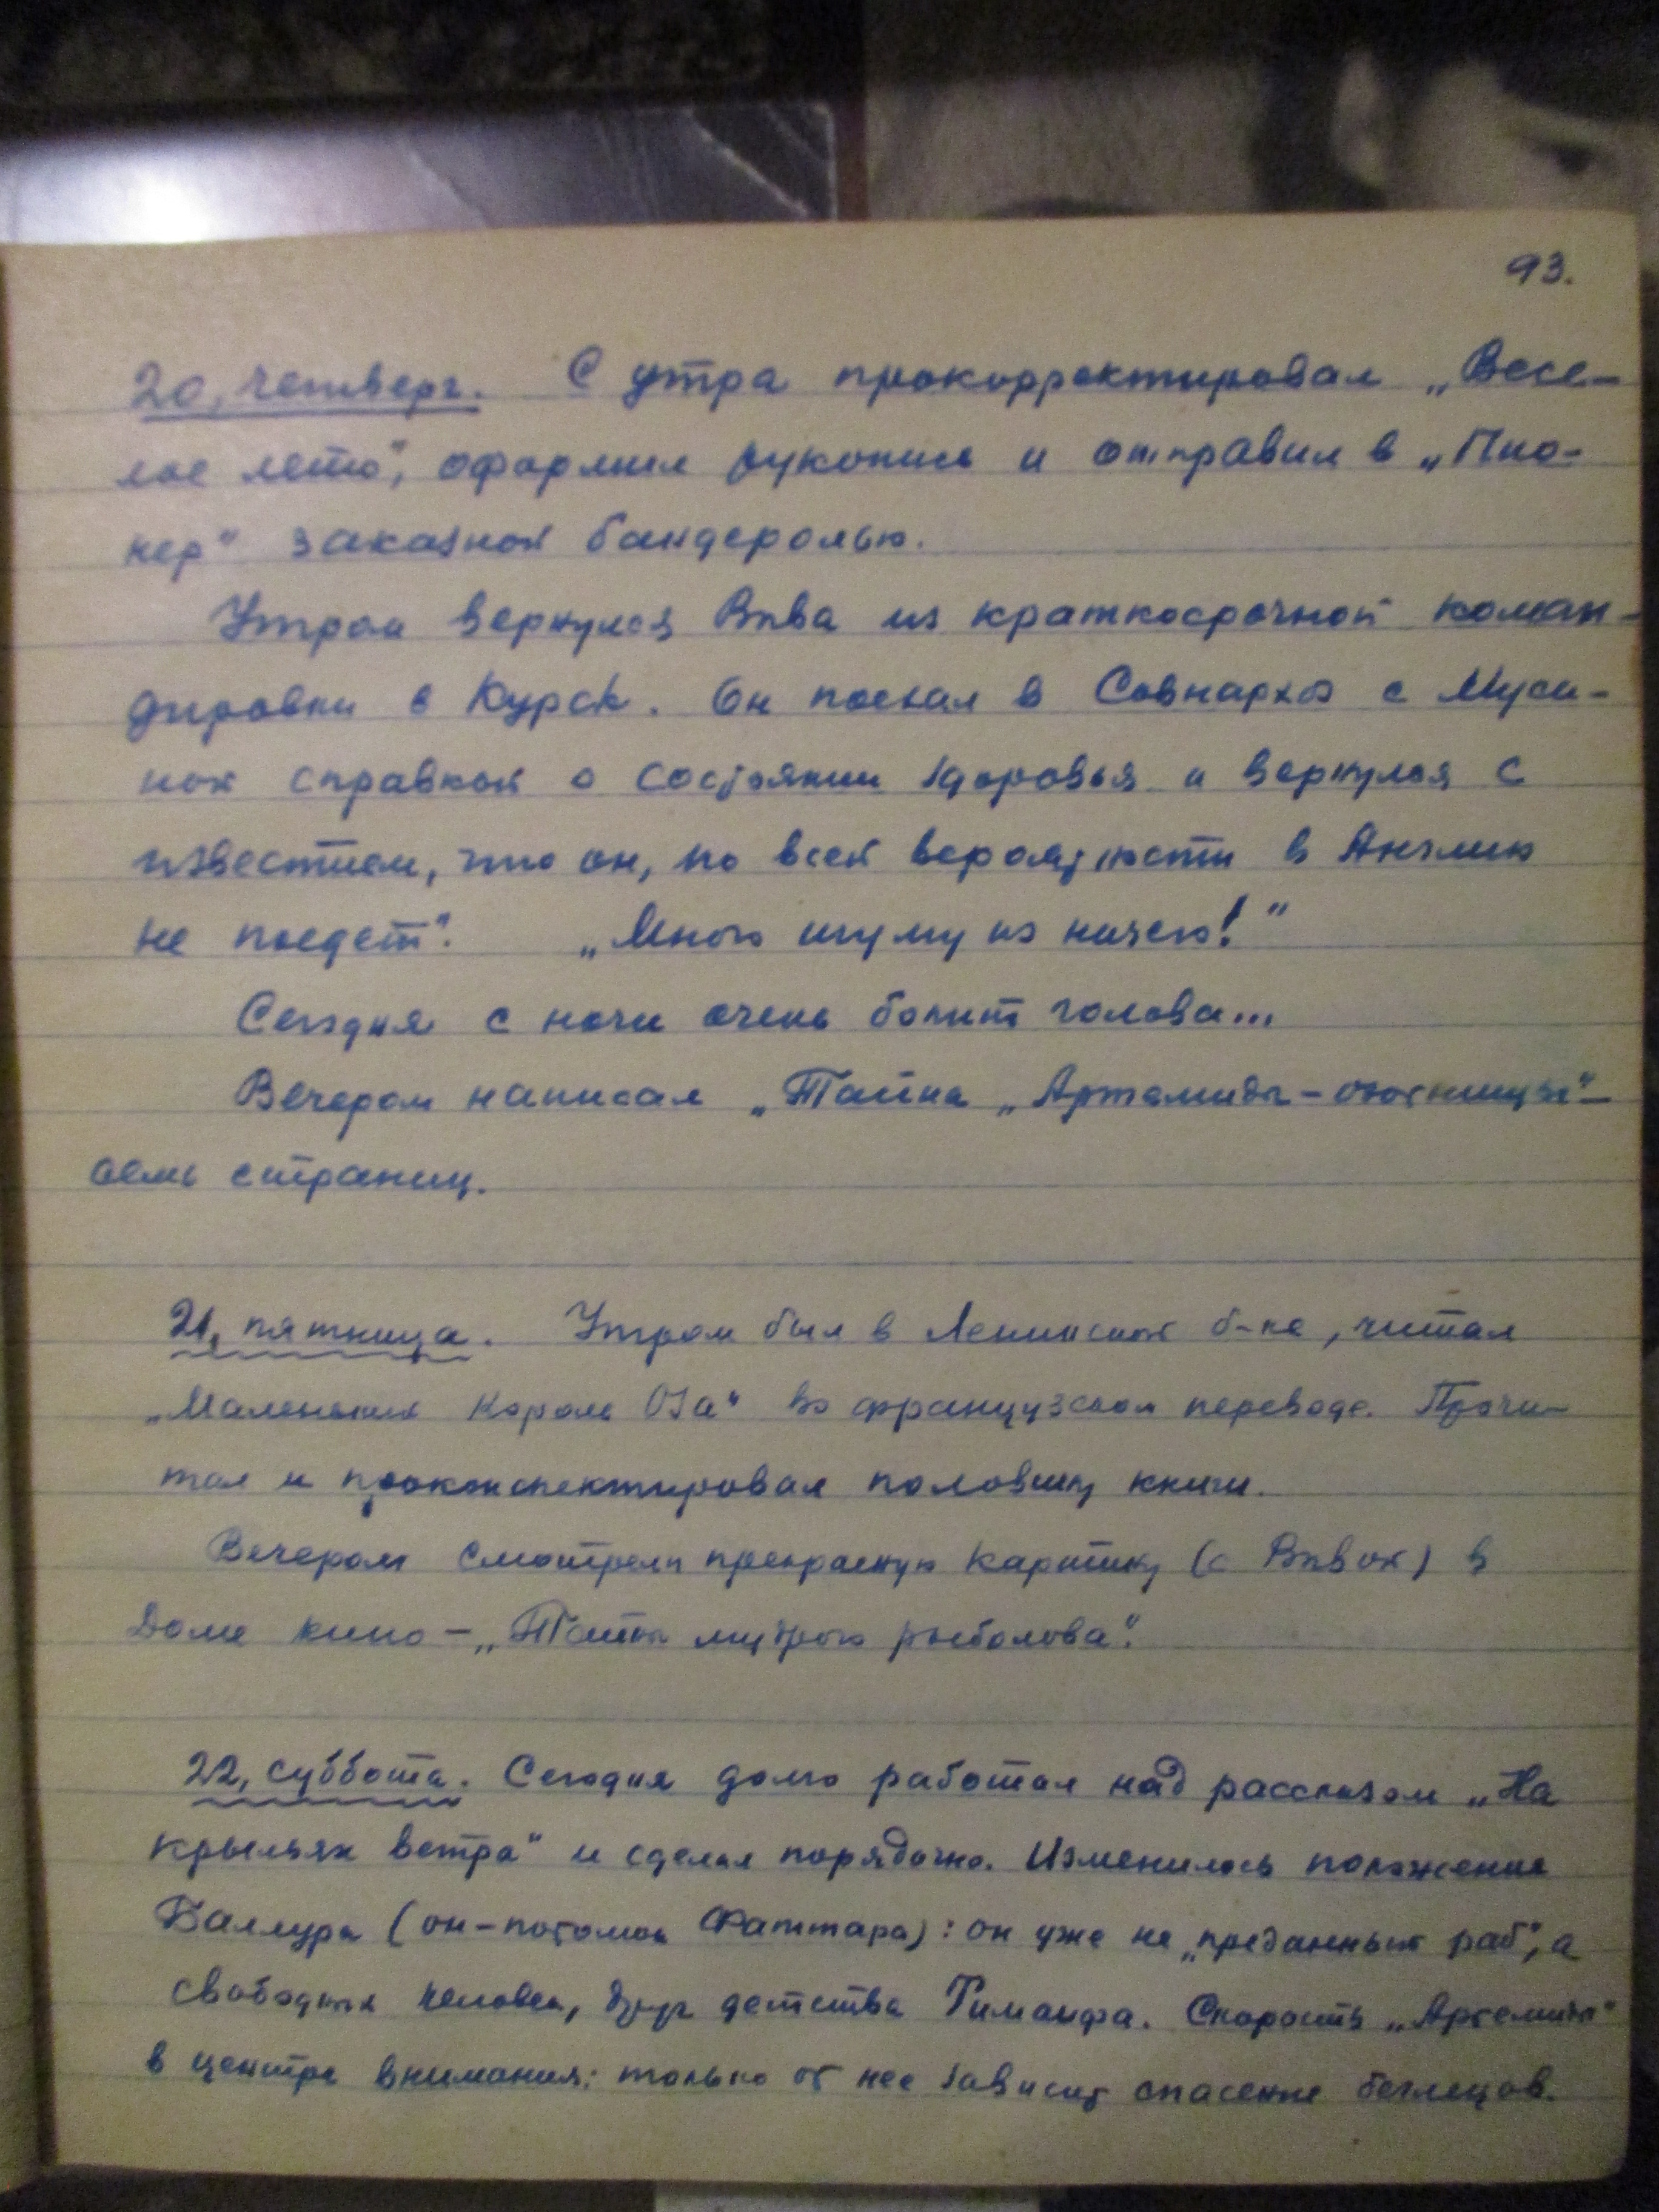 93.
20, четверг. С утра прокорректировал „Весе-
лое лето", оформил рукопись и отправил в „Пио-
нер" заказной бандеролью.
Утром вернулся Вивa из краткосрочной коман-
дировки в Курск. Он поехал в Совнархоз с Муси-
ной справкой о состоянии здоровья и вернулся с
известием, что он, по всей вероятности в Англию
не поедет". „Много шуму из ничего!"
Сегодня с ночи очень болит голова...
Вечером написал „Тайна „Артемиды-охотницы"-
семь страниц.
21, пятница. Утром был в Ленинской б-ке, читал
„Маленький король Оза" во французском переводе. Прочи-
тал и проконспектировал половину книги.
Вечером смотрели прекрасную картину (с Вивой) в
Доме кино-„Тайны мудрого рыболова".
22, суббота. Сегодня долго работал над рассказом „На
крыльях ветра" и сделал порядочно. Изменилось положение
(он-потомок Фаттара): он уже не „преданный раб", а
свободный человек, друг детства Тиманфа. Скорость „Артемиды"
в центре внимания: только от нее зависит спасение беглецов.